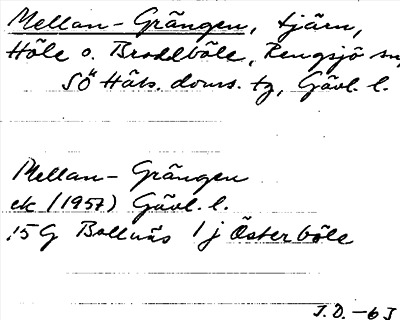 Mellan-Grängen, tjärn,
Höle o. Broddböle, Rengsjö sn,
SÖ Häls. doms. tg, Gävl. l.
Mellan-Grängen
ek (1957) Gävl. l.
15 G Bollnäs 1 j Österböle
J.D. -63